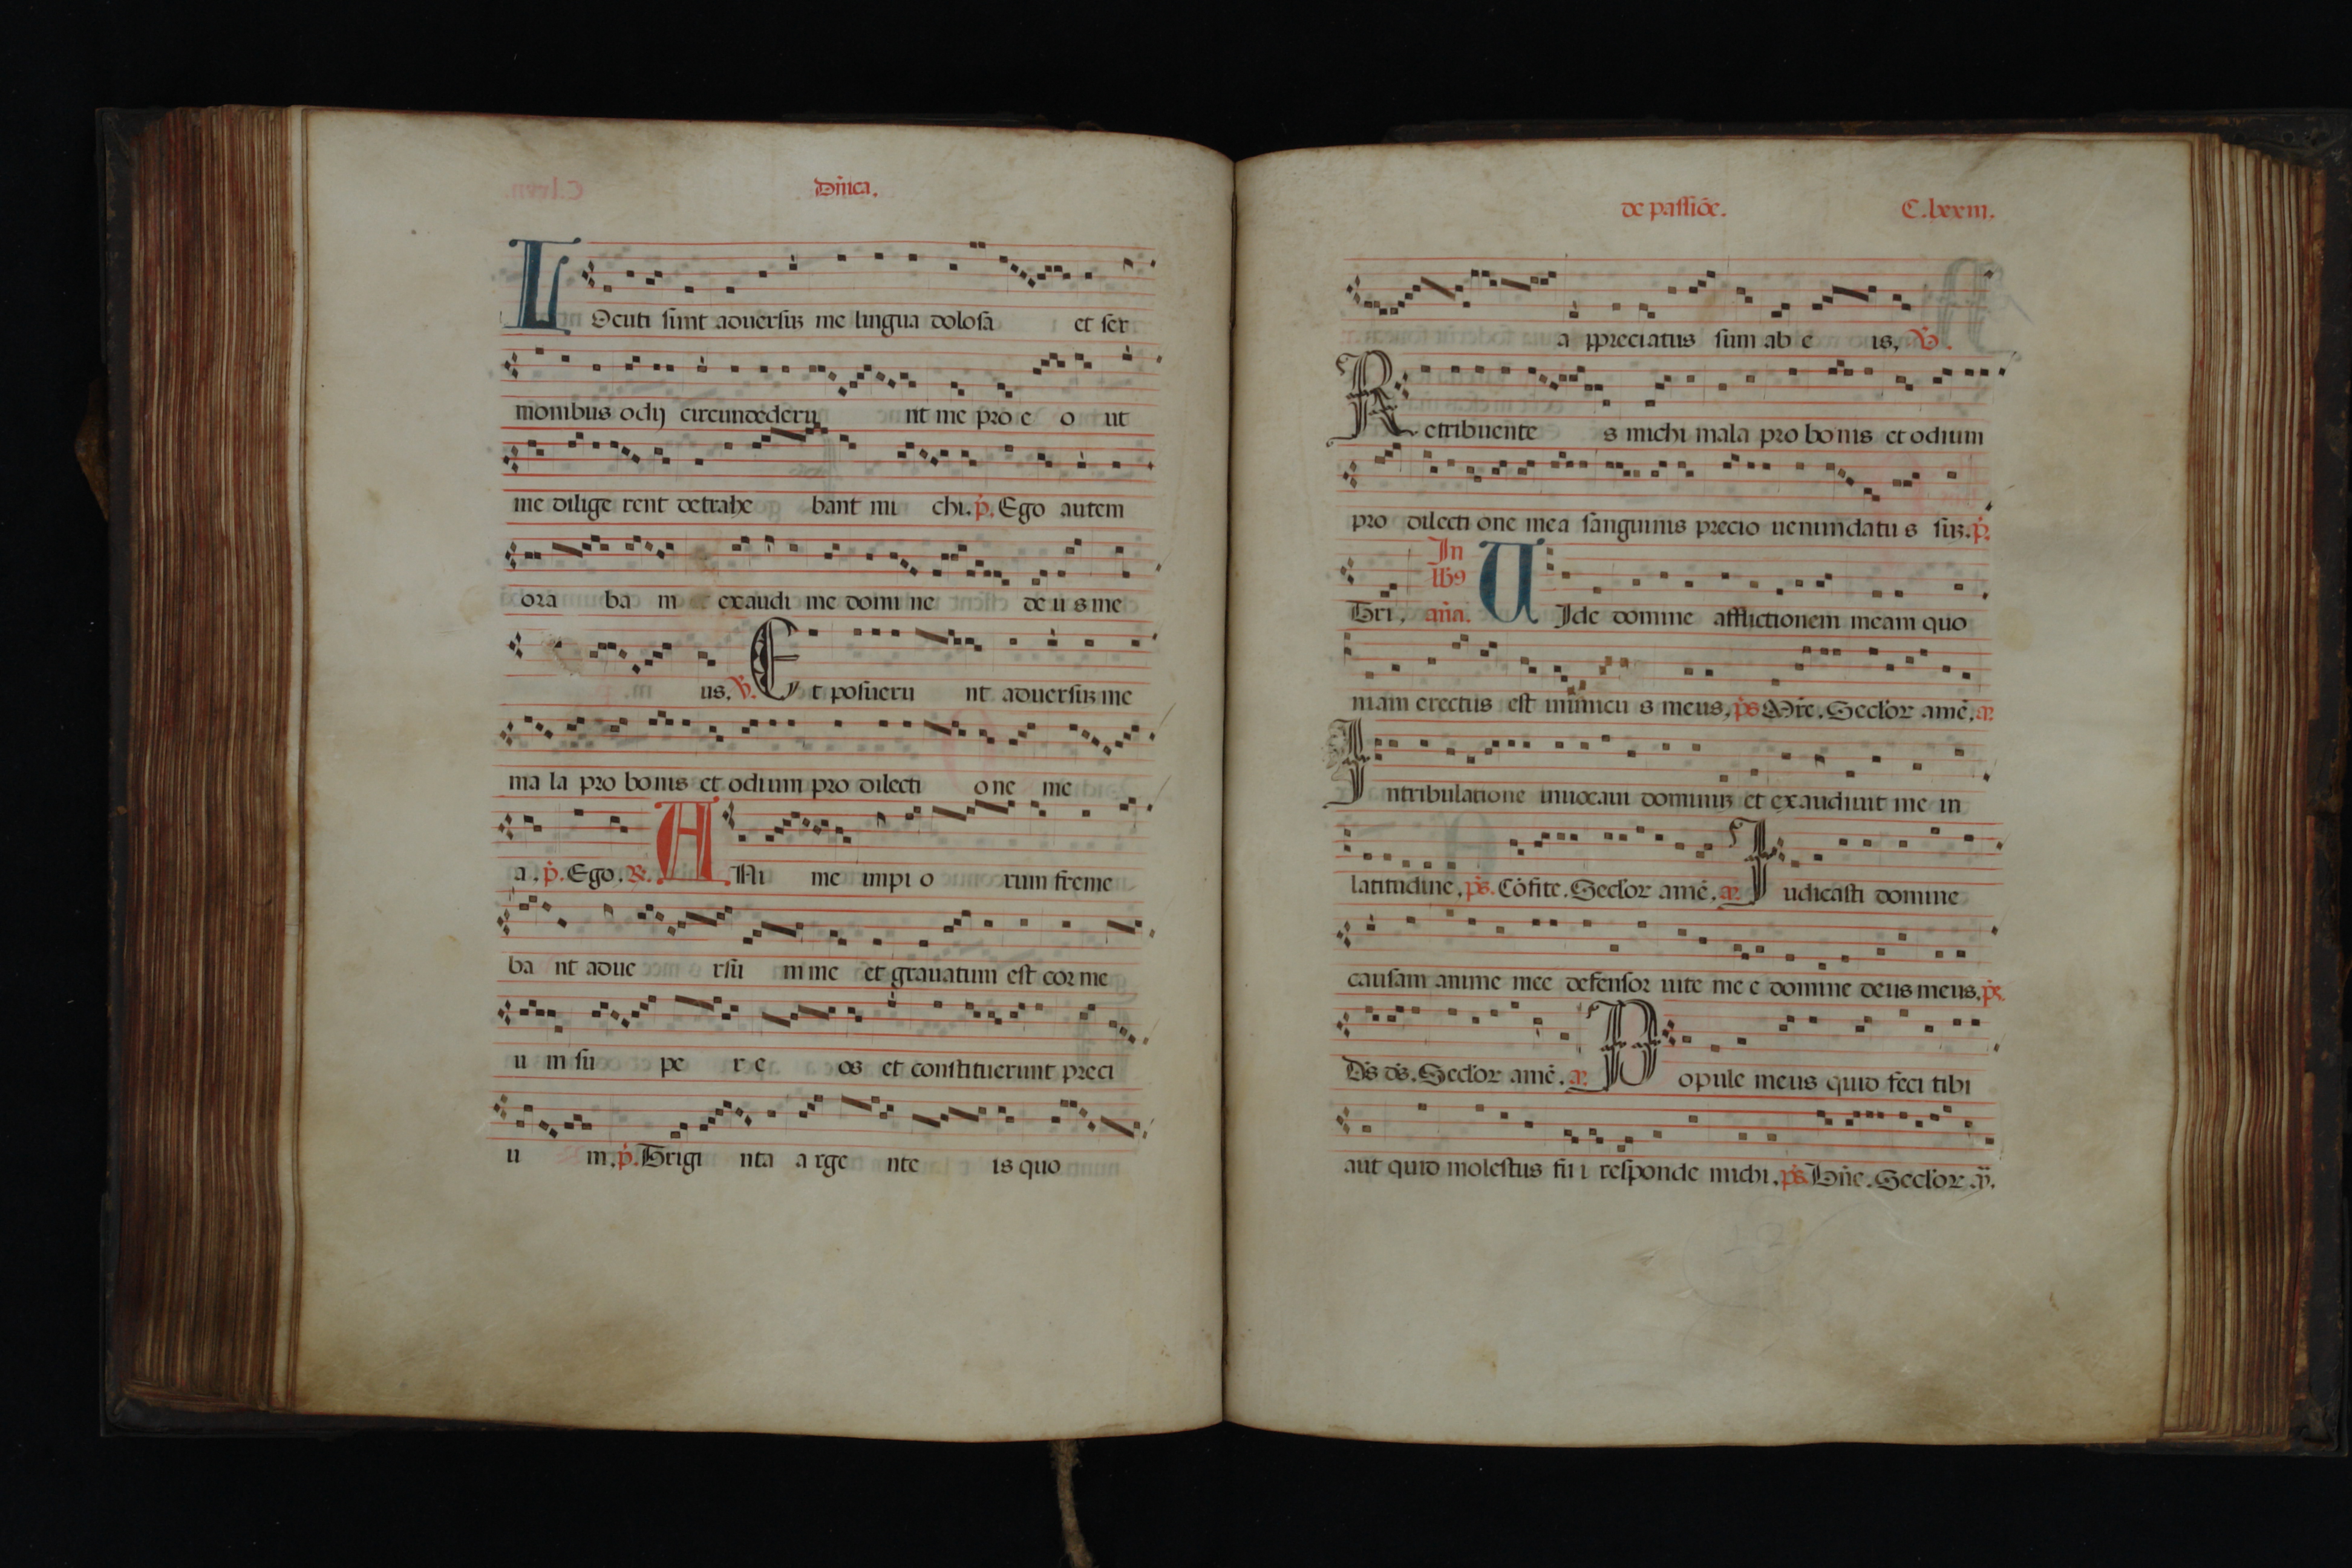 Dn̄ica.
LOcuti sunt aduersus me lingua dolosa et ser
monibus odij circundederu nt me pro e o ut
me dilige rent detrahe bant mi chi. p̄. Ego autem
ora ba m exaudi me domi ne de u s me
us. ℣. Et posueru nt aduersus me
ma la pro bonis et odium pro dilecti one me
a. p̄. Ego. ℟. ANi me impi o rum freme
ba nt adue rsu m me et grauatum est cor me
u m su pe r e os et constituerunt preci
u m. p̄. Trigi nta a rge nte is quo
de passiōe. C.lxxiii.
a ppreciatus sum ab e is, ℣.
Retribuente s michi mala pro bonis et odium
pro dilecti one mea sanguinis precio uenundatu s sus. p̄.
Tri, In lib9 añа. UIde domine afflictionem meam quo
niam erectus est inimicu s meus, p̄s Mīe. Seclor amē. a.
In tribulatione inuocaui dominus et exaudiuit me in
latitudine, p̄s. Cōfite. Seclor amē. a. Iudicasti domine
causam anime mee defensor uite me e domine deus meus. p̄s.
D̄s d̄s. Seclor amē. a. Popule meus quid feci tibi
aut quid molestus fu i responde michi. p̄s Dn̄e. Seclor a̅.